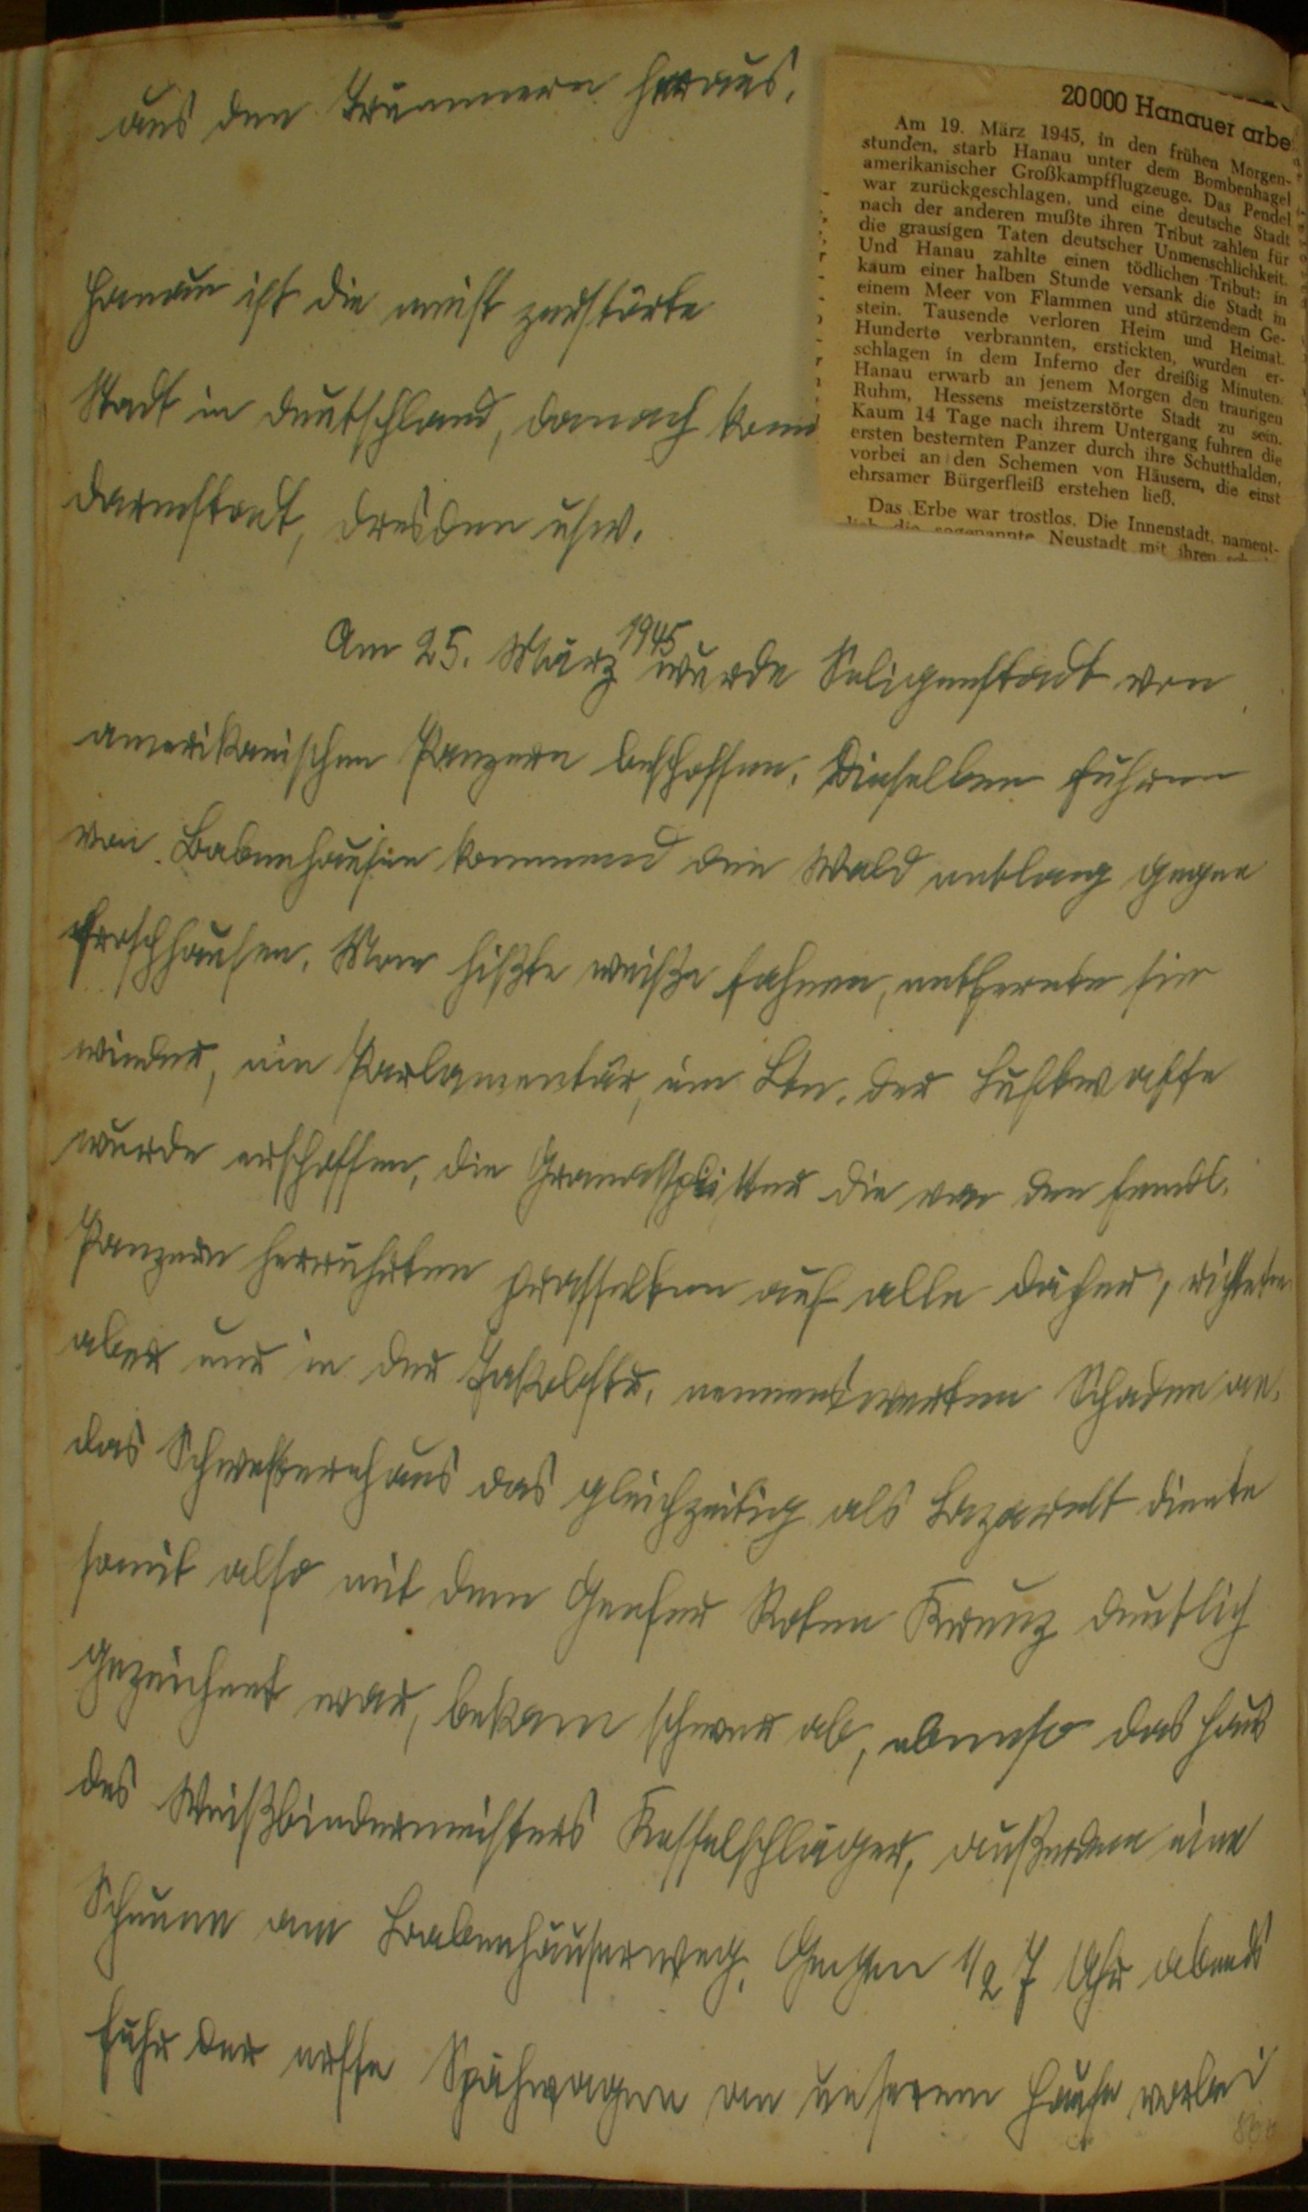 aus den Trümmern heraus.
Hanau ist die meist zerstörte
Stadt in Deutschland, danach kom
Darmstadt, Dresden usw.
Am 25. März 1945 wurde Seligenstadt von
amerikanischen Panzern beschossen. Dieselben fuhren
von Babenhausen kommend den Wald entlang gegen
Froschhausen. Man hißte weiße Fahnen, entfernte sie
wieder, ein Parlamentär, ein Ltn. der Luftwaffe
wurde erschossen, die Granatsplitter die von den feindl.
Panzern herrührten prasselten auf alle Dächer, richteten
aber nur in der Jakobstr. nennenswerten Schaden an.
Das Schwesternhaus das gleichzeitig als Lazarett diente
somit also mit dem Genfer Roten Kreuz deutlich
gezeichnet war, bekam schwer ab, ebenso das Haus
des Weißbindermeisters Kesselschläger, außerdem eine
Scheune am Babenhäuserweg. Gegen 1/2 7 Uhr abends
fuhr der erste Spähwagen an unserem Hause vorbei
20000 Hanauer arbe
Am 19. März 1945, in den frühen Morgen-
stunden, starb Hanau unter dem Bombenhagel
amerikanischer Großkampfflugzeuge. Das Pendel
war zurückgeschlagen, und eine deutsche Stadt
nach der anderen mußte ihren Tribut zahlen für
die grausigen Taten deutscher Unmenschlichkeit.
Und Hanau zahlte einen tödlichen Tribut: in
kaum einer halben Stunde versank die Stadt in
einem Meer von Flammen und stürzendem Ge-
stein. Tausende verloren Heim und Heimat.
Hunderte verbrannten, erstickten, wurden er-
schlagen in dem Inferno der dreißig Minuten.
Hanau erwarb an jenem Morgen den traurigen
Ruhm, Hessens meistzerstörte Stadt zu sein.
Kaum 14 Tage nach ihrem Untergang fuhren die
ersten besternten Panzer durch ihre Schutthalden,
vorbei an den Schemen von Häusern, die einst
ehrsamer Bürgerfleiß erstehen ließ.
Das Erbe war trostlos. Die Innenstadt, nament-
lich die sogenannte Neustadt mit ihren